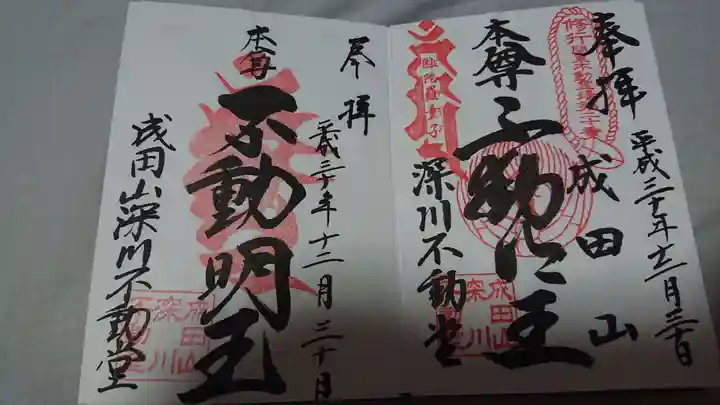 奉拝
平成三十年十二月三十日
成田山
本尊
不動明王
深川不動堂
奉拝
平成三十年十二月三十日
本尊
不動明王
成田山深川不動堂
成田山
深川
成田山
深川
不動堂